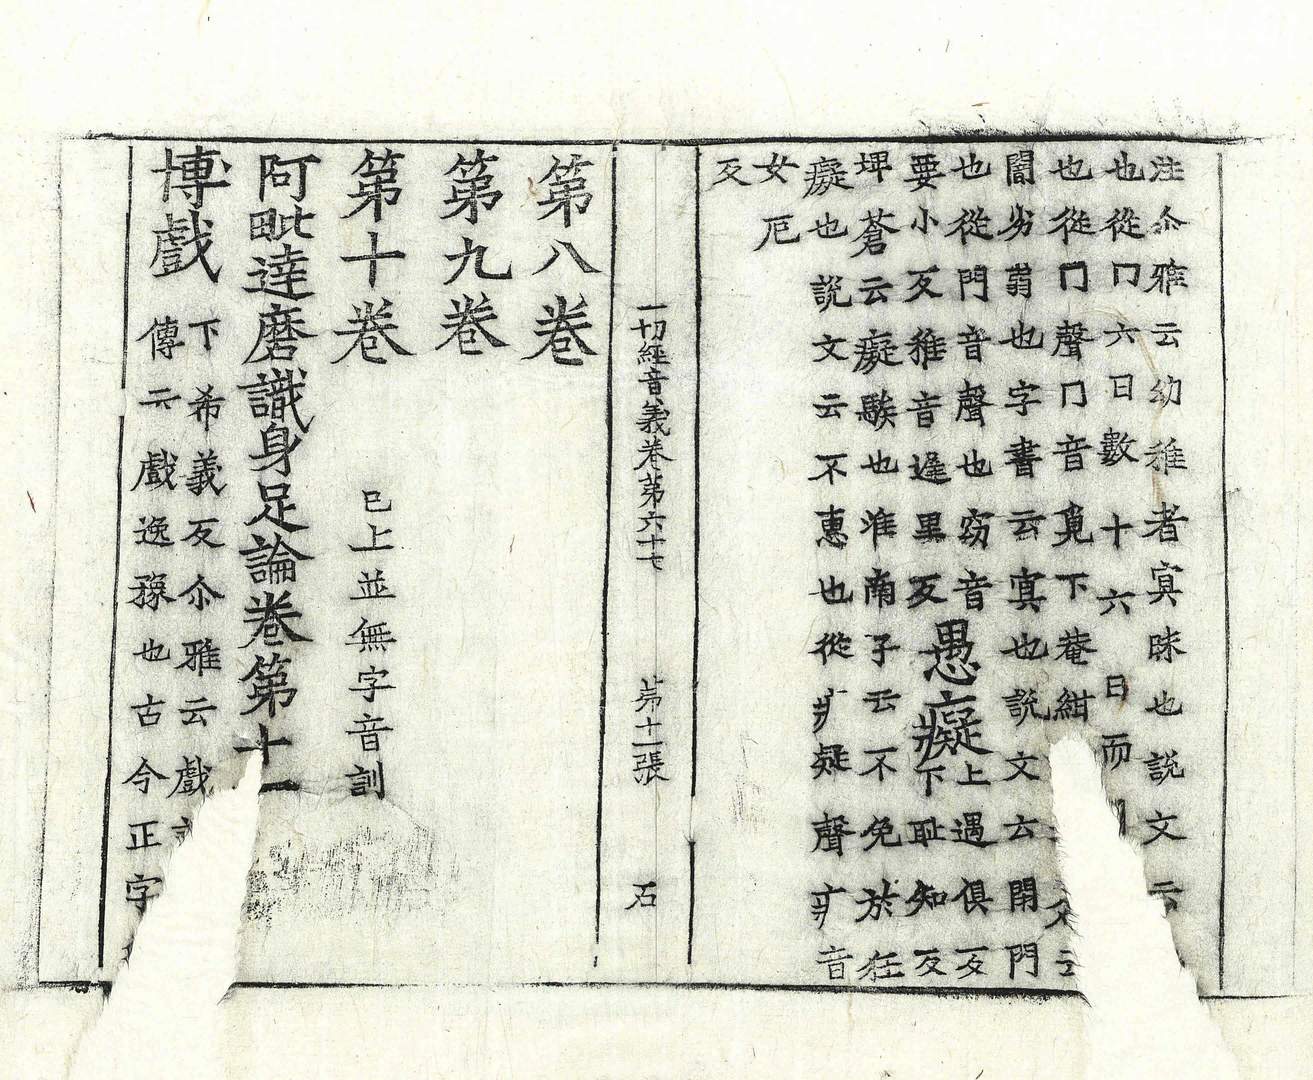 注尒雅云幼稚者㝠昧也說文云
也從冂六日數十六日而
也從冂聲冂音覓下菴紺
闇劣弱也字書云㝠也說文云閉門
也從門音聲也窈音
要小反稚音遲里反愚癡上遇俱反
下耻知反
埤蒼云癡騃也淮南子云不免於狂
癡也說文云不惠也從疒疑聲疒音
女厄
反
一切經音義卷第六十七 第十一張 石
第八卷
第九卷
第十卷 已上並無字音訓
阿毗達磨識身足論卷第十一
博戲 下希義反尒雅云戲
傳云戲逸豫也古今正字